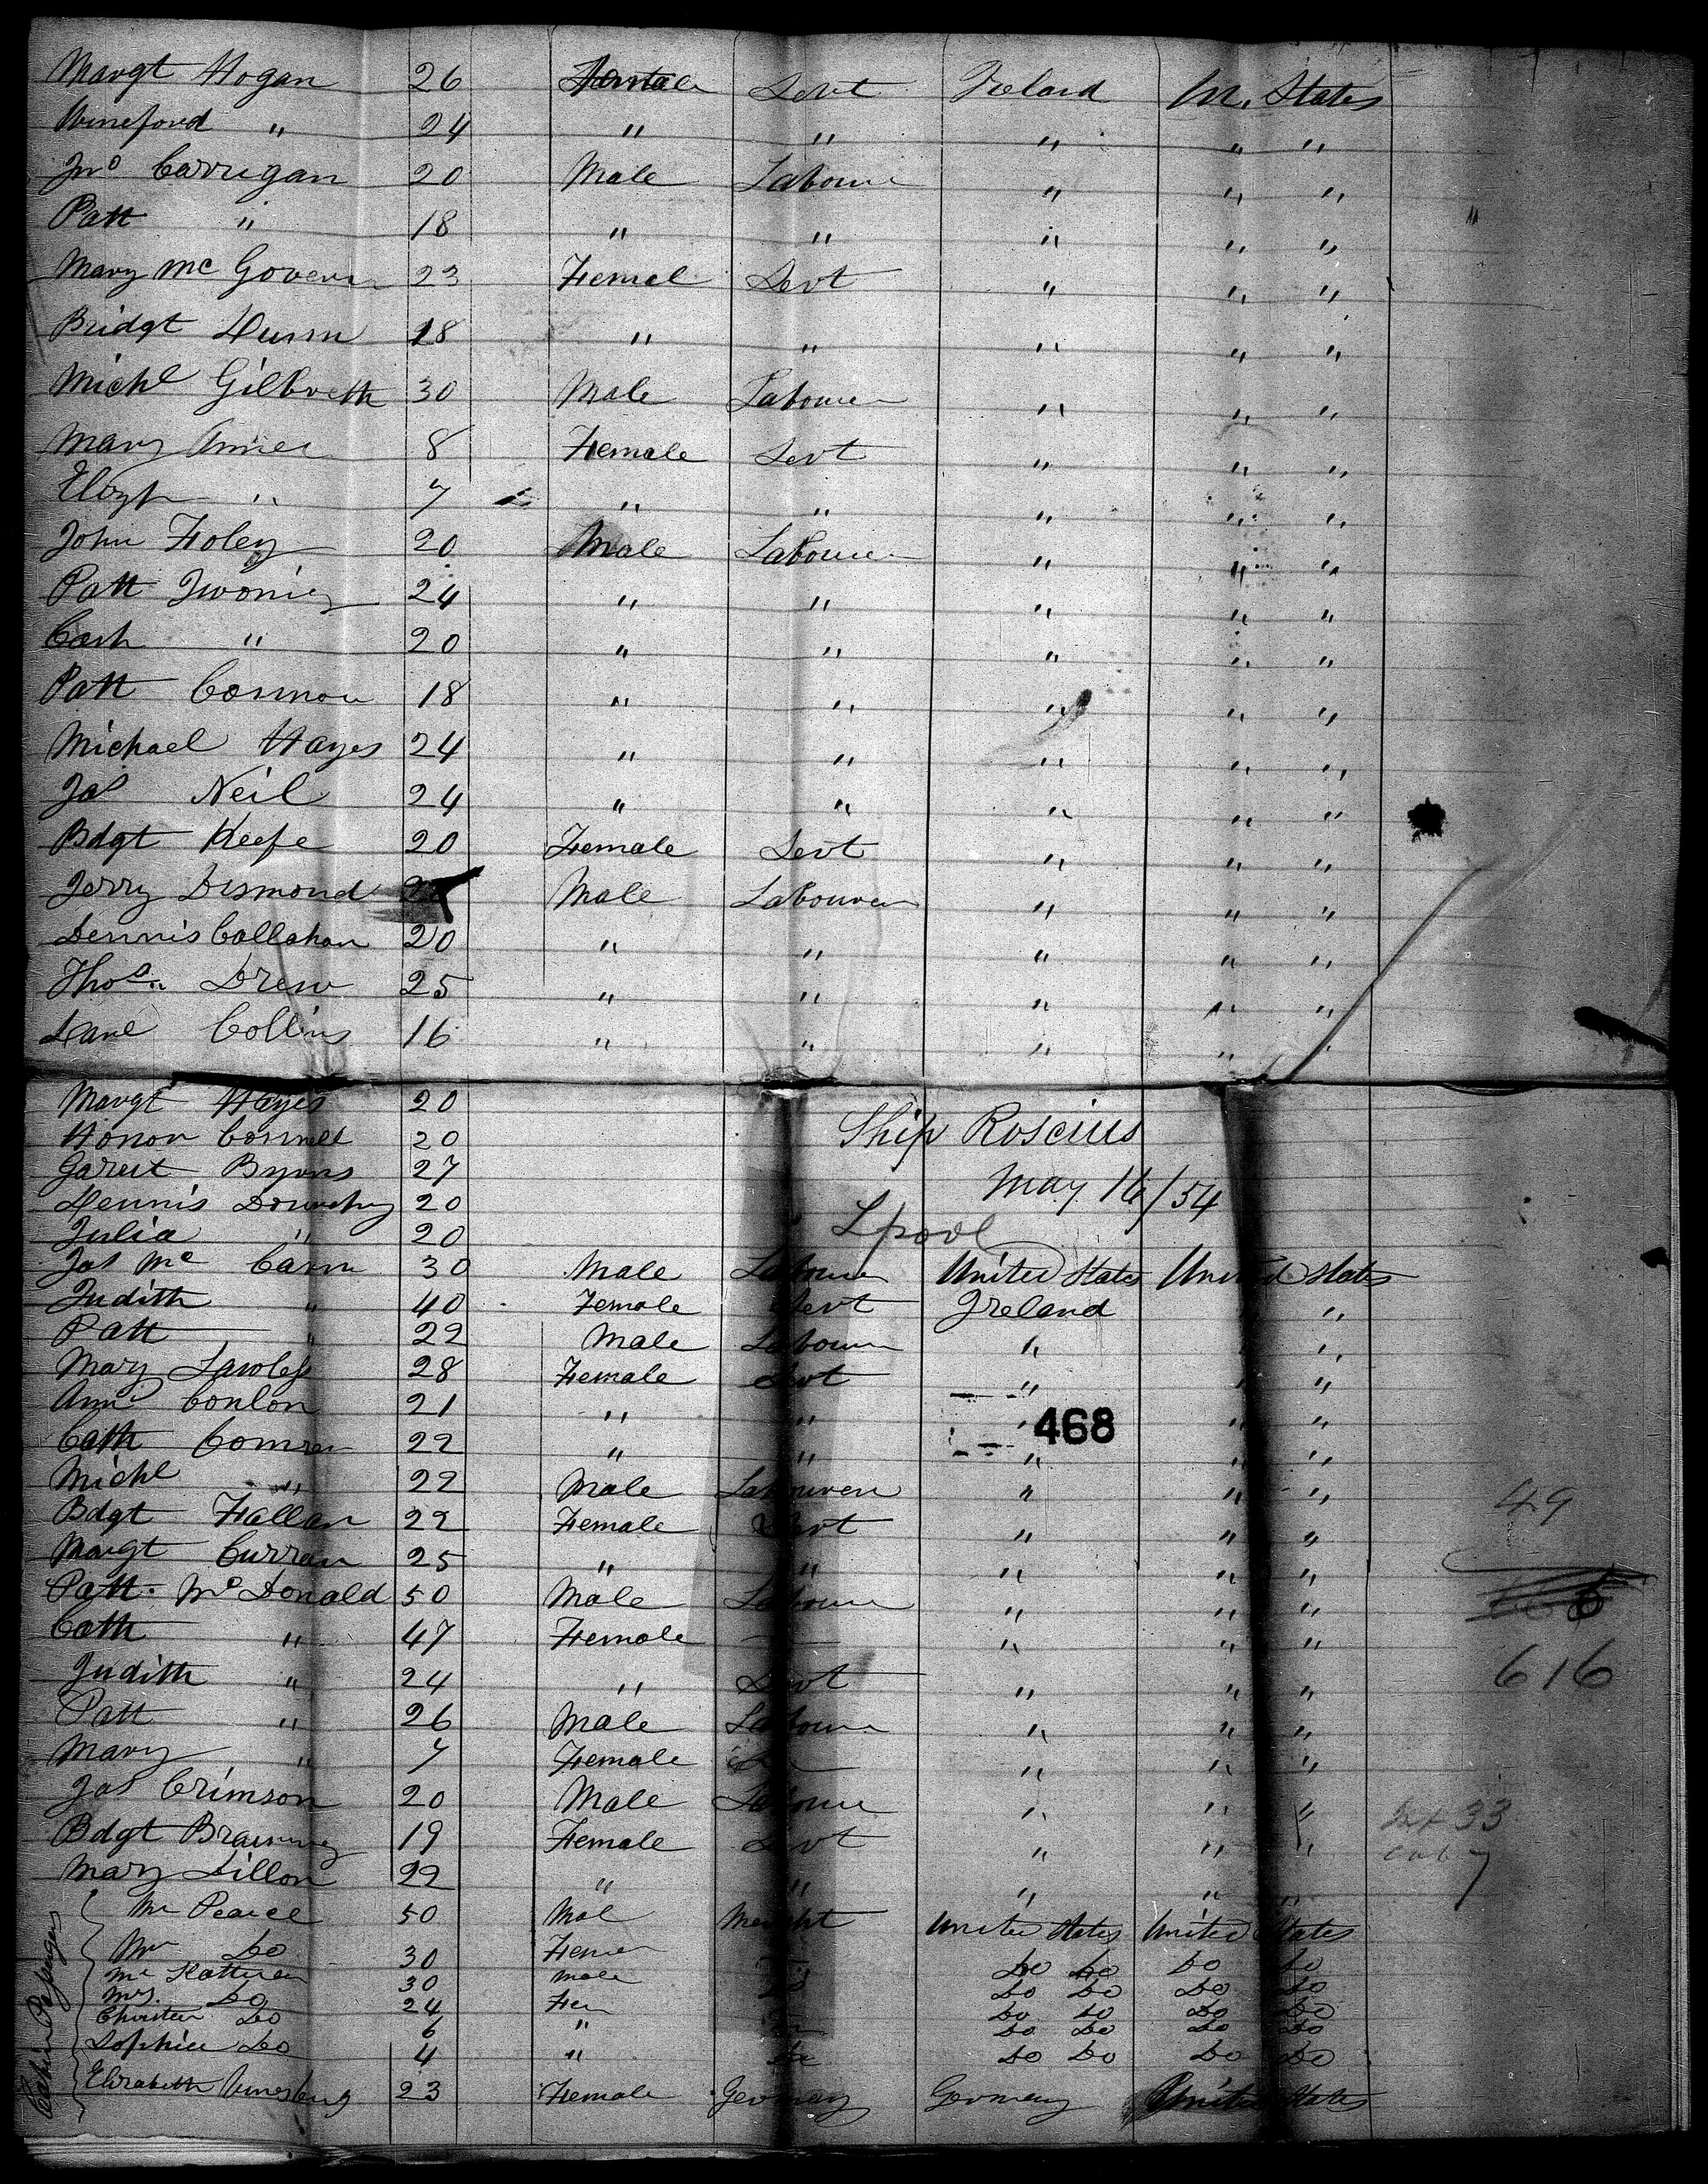 Margt Hogan 26 Female Servt Ireland Un. States
Wineford " 24 " " " " "
Jno Carrigan 20 Male Labourer " " "
Patt " 18 " " " " "
Mary Mc Govern 23 Femal Servt " " "
Bridgt Dunn 18 " " " " "
Michl Gilbreth 30 Male Labourer " " "
Mary Anne 8 Female Servt " " "
" 7 " " " " "
John Foley 20 Male Labourer " " "
Patt 24 " " " " "
Cath " 20 " " " " "
Patt Connor 18 " " " " "
Michael Hayes 24 " " " " "
Jas Neil 24 " " " " "
Bdgt Keefe 20 Female Servt " " "
Jerry Desmond Male Labourer " " "
Dennis Callahan 20 " " " " "
Thos Drew 25 " " " " "
Danl Collins 16 " " " " "
Margt Hayes 20
Honor Connell 20
Ship Roscius
Garett Byrns 27
May 16/54
Dennis 20
Julia " 20
Lpool
Jas Mc Cann 30 Male Labourer United States United States
Judith " 40 Female Servt Ireland " "
Patt " 22 Male Labourer " " "
Mary Lawless 28 Female Servt " " "
Ann Conlon 21 " " " " "
468
Cath 22 " " " " "
Michl " 22 Male Labourer " " "
49
Bdgt Fallan 22 Female Servt " " "
Margt Curran 25 " " " " "
Patt. Mc Donald 50 Male Labourer " " "
Cath " 47 Female " " "
616
Judith " 24 " Servt " " "
Patt " 26 Male Labourer " " "
Mary " 7 Female " " "
Jas Crimson 20 Male Labourer " " "
33
Bdgt 19 Female Servt " " "
7
Mary Dillon 22 " " " " "
Cabin Passengers
Mr Pearce 50 Mal United States United States
Do 30 Do Do Do Do
Mr 30 Male Do Do Do Do
Mrs. Do 24 Fem Do Do Do Do
Do 6 " Do Do Do Do
Sophia Do 4 " Do Do Do Do
Elizabeth 23 Female Germany Germany United States